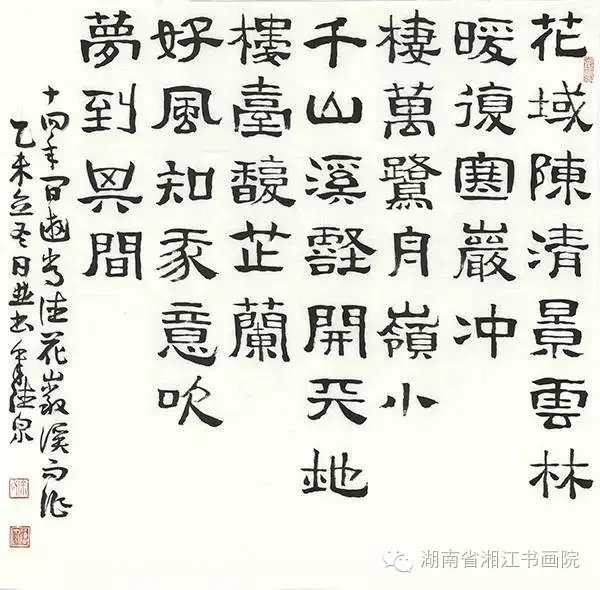 花域陳清景雲林
暖復寒巖冲
棲萬鷺嶺小
千山溪壑開天地
樓臺馥芷蘭
好風知我意吹
夢到其間
十四年遊常德花巖溪而作
乙未立冬日並書
湖南省湘江书画院